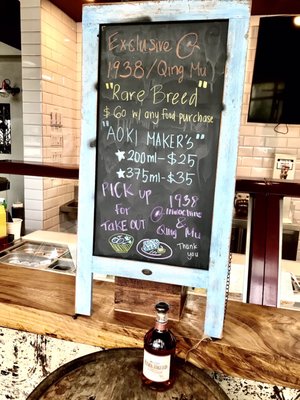 Exclusive @
1938/Qing Mu
"Rare Breed"
$60 w/ any food purchase
"AOKI MAKER'S"
★ 200ml-$25
★ 375ml-$35
PICK up 1938
for @
TAKE OUT &
Qing Mu
Thank
you